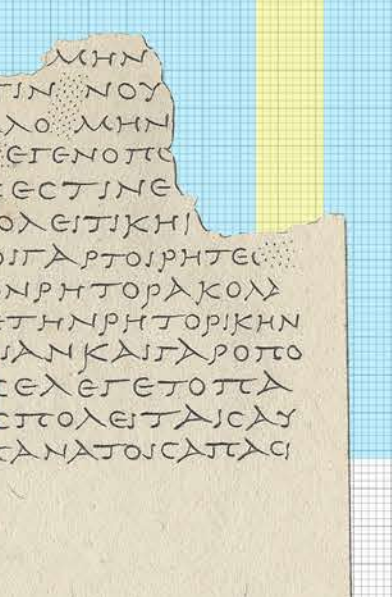 ΜΗΝ
ΤΙΝ ΝΟΥ
ΛΟ ΜΗΝ
ΕΓΕΝΟΠϹ
ΕϹΤΙΝΕ
ΟΛΕΙΤΙΚΗΙ
ΟΙΓΑΡΤΟΙΡΗΤΕ
ΝΡΗΤΟΡΑΚΟΛΑ
ΤΗΝΡΗΤΟΡΙΚΗΝ
ΙΑΝΚΑΙΓΑΡΟΠΟ
ΕΛΕΓΕΤΟΠΑ
ϹΠΟΛΕΙΤΑΙϹΑΥ
ΑΝΑΤΟΙϹΑΠΑϹΙ